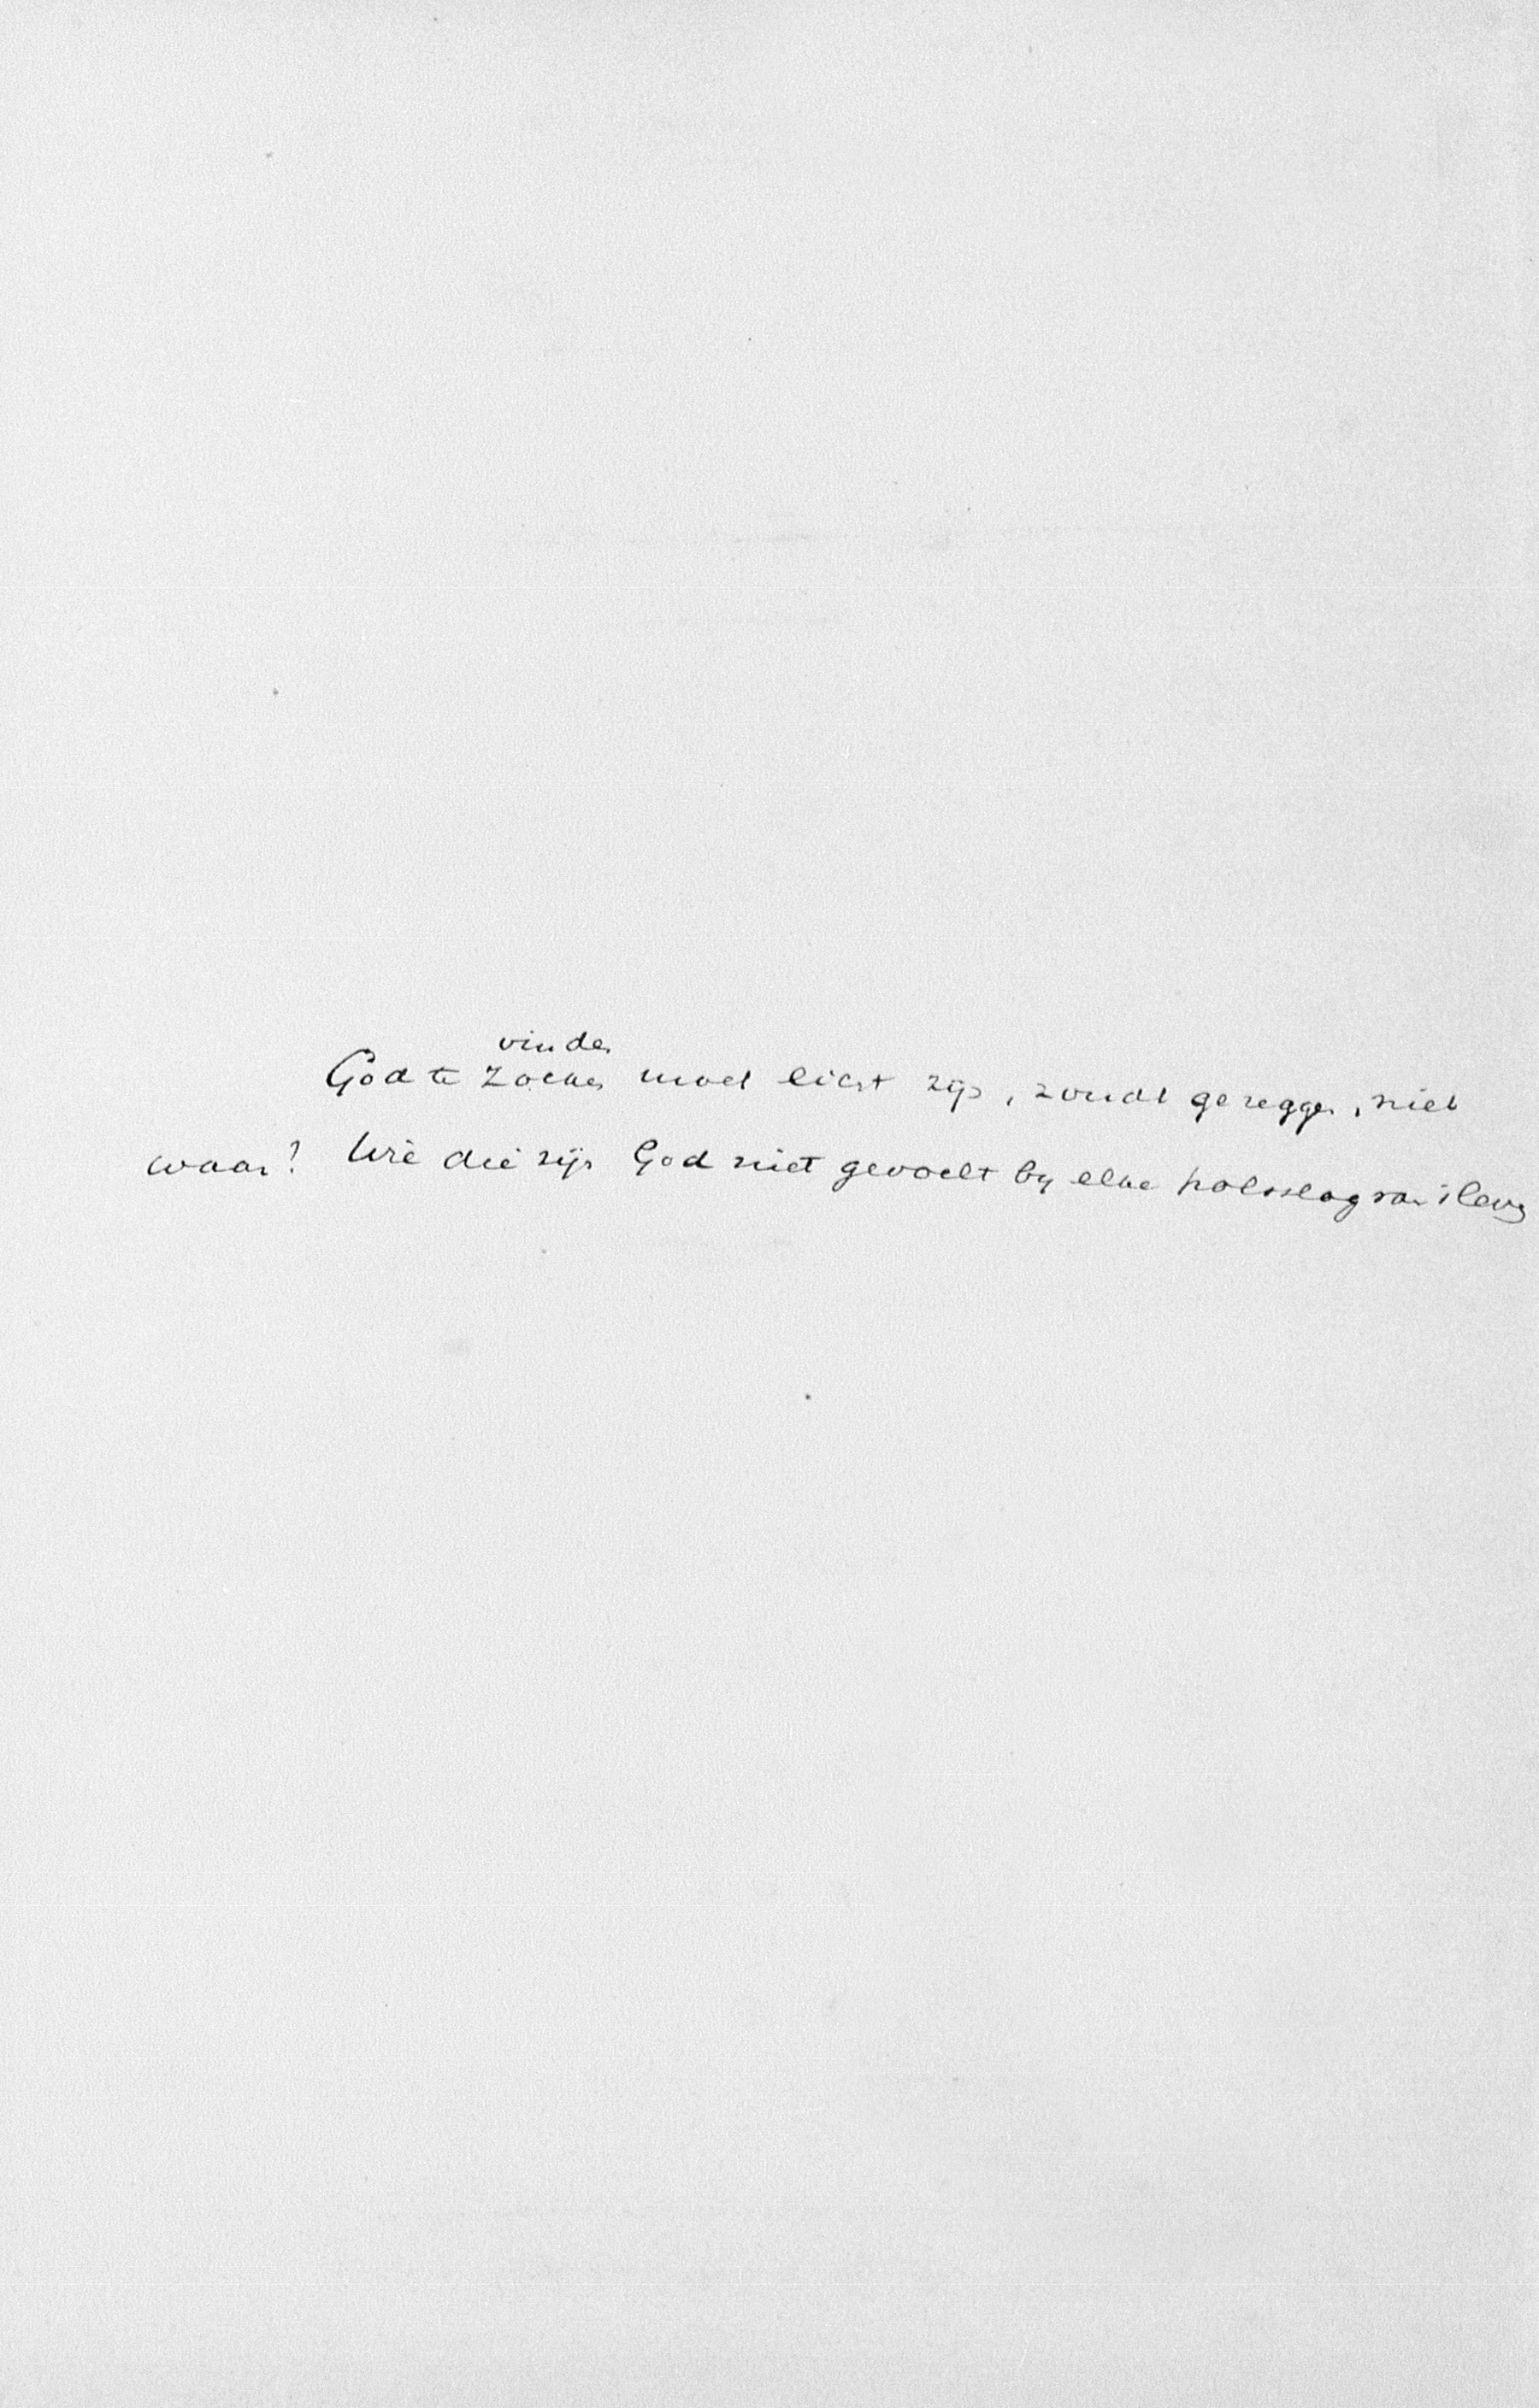 vinden
God te zoeken moet licht zijn, zoudt ge zeggen, niet
waar? Wie die zijn God niet gevoelt by elke polsslag van 't leven